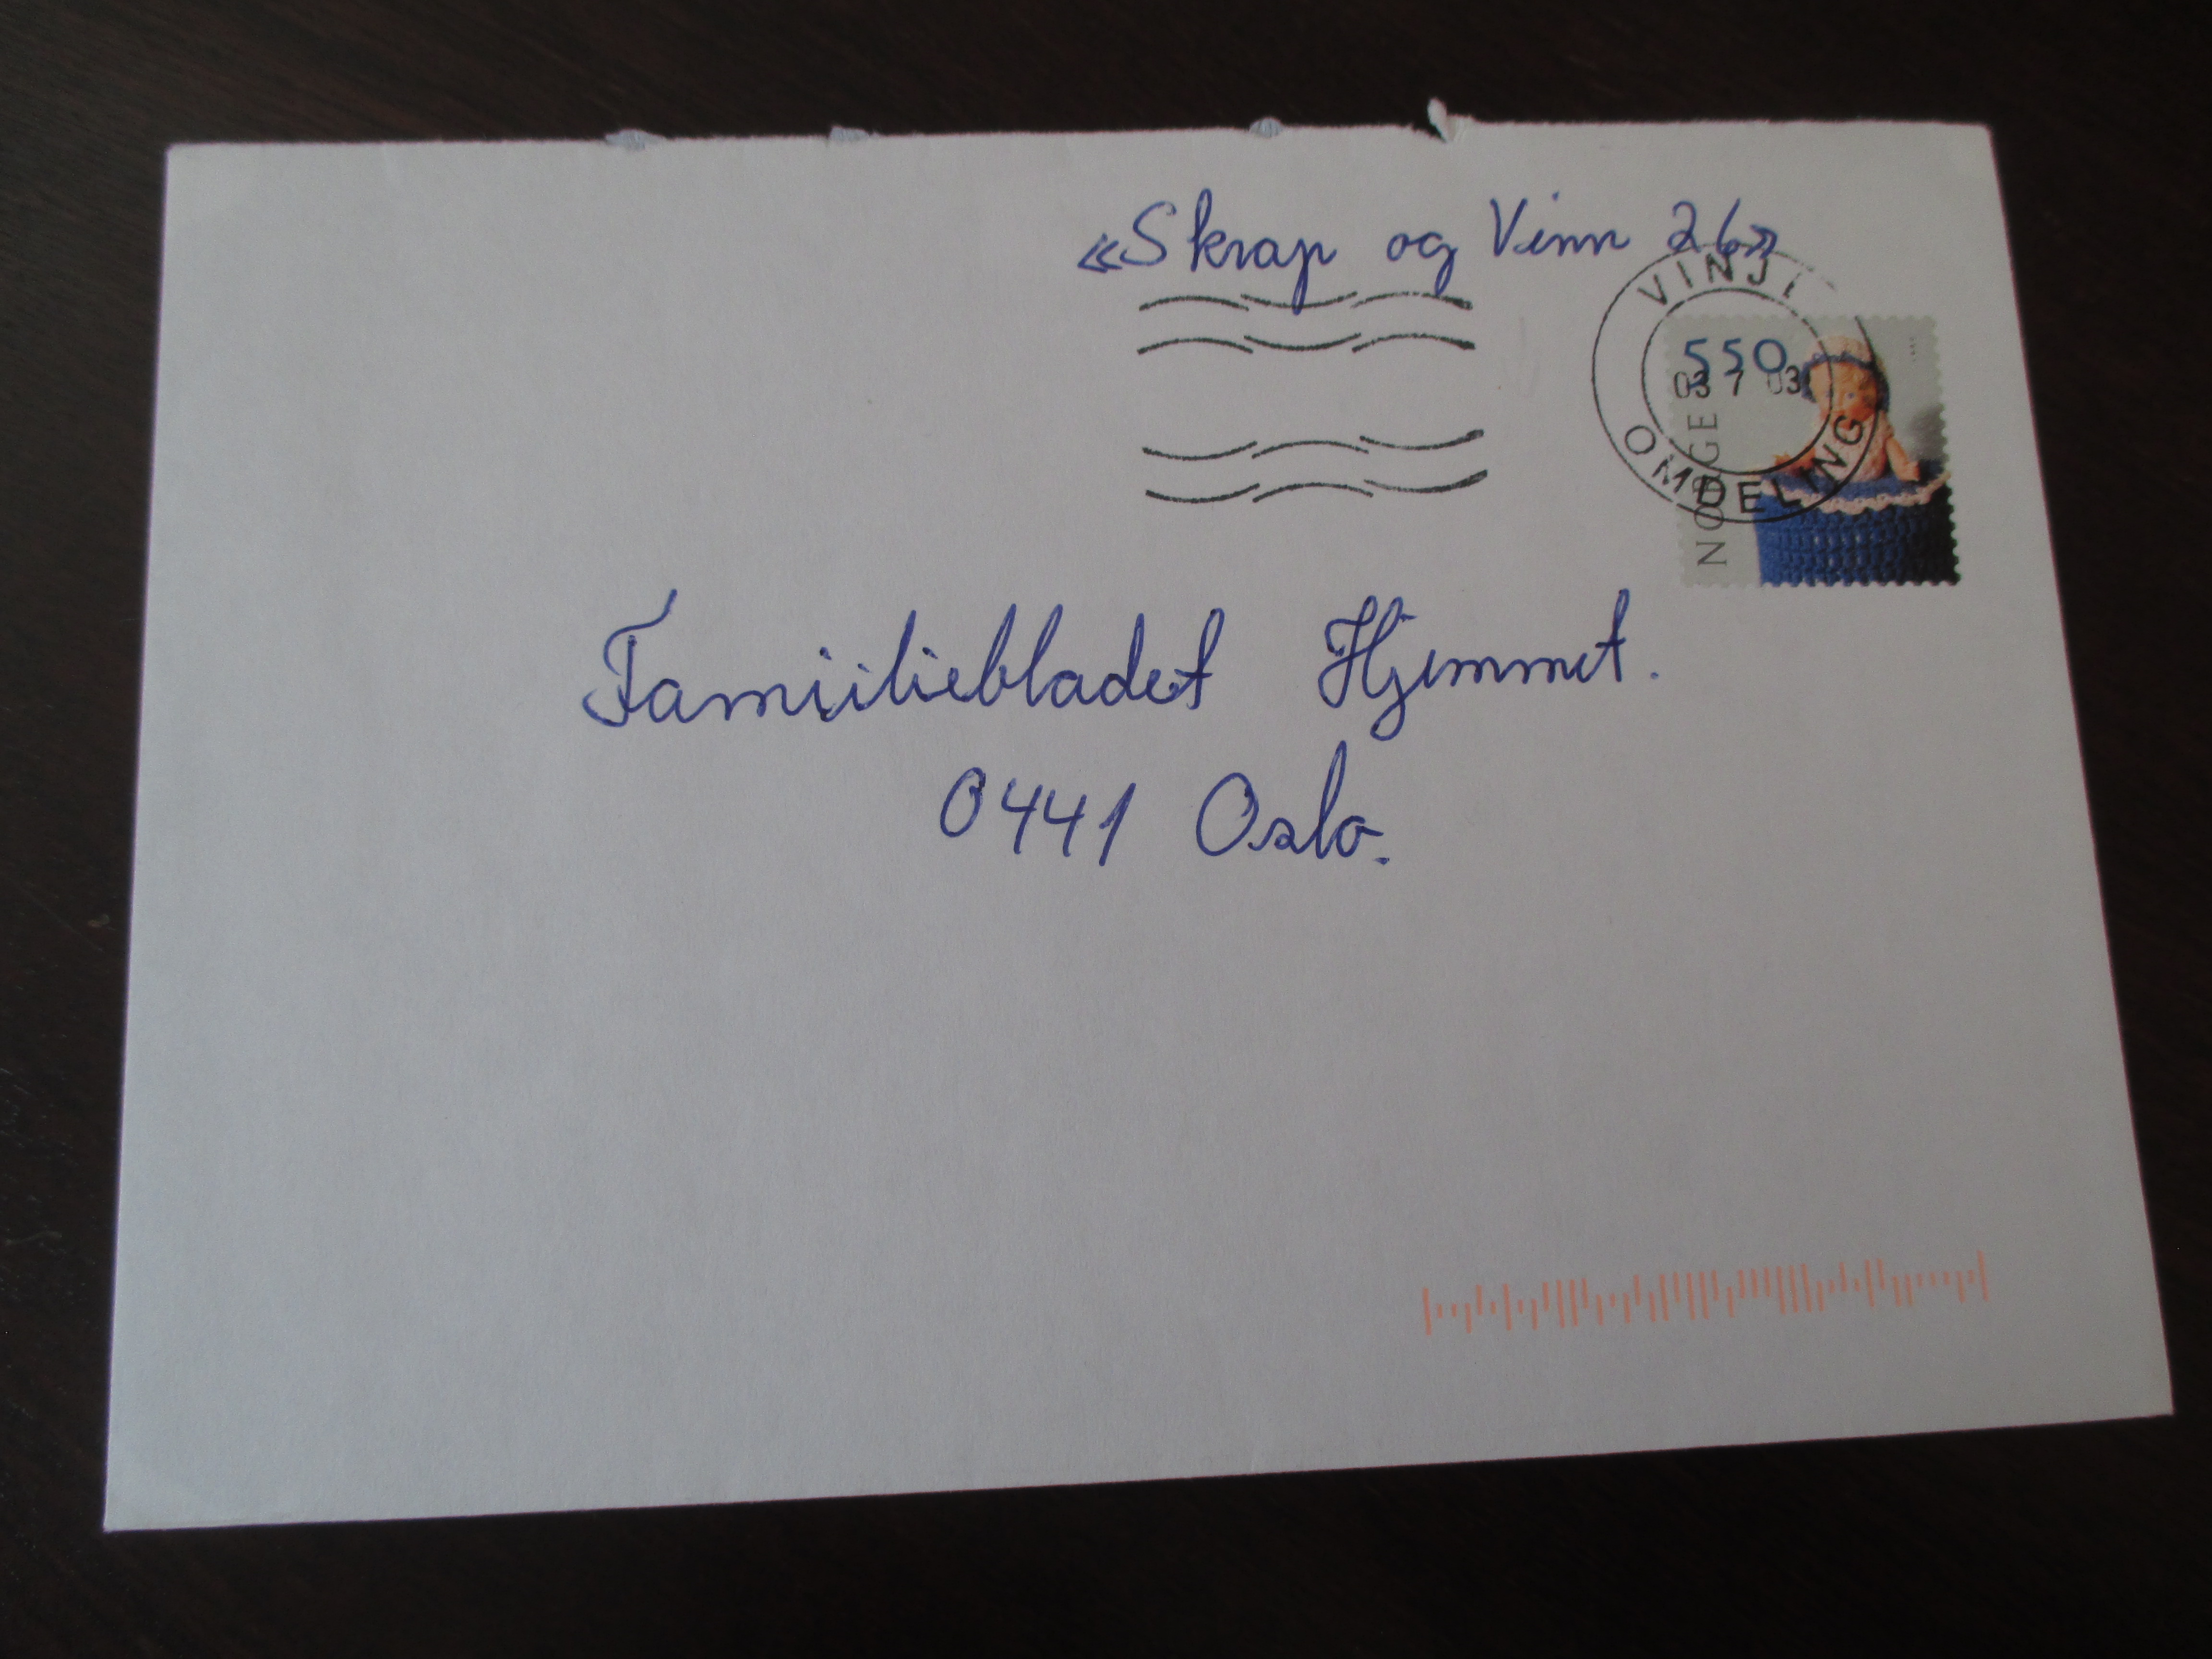 «Skrap og Vinn 26»
550
03 7 03
NORGE
OMDELING
Familiebladet Hjemmet.
0441 Oslo.